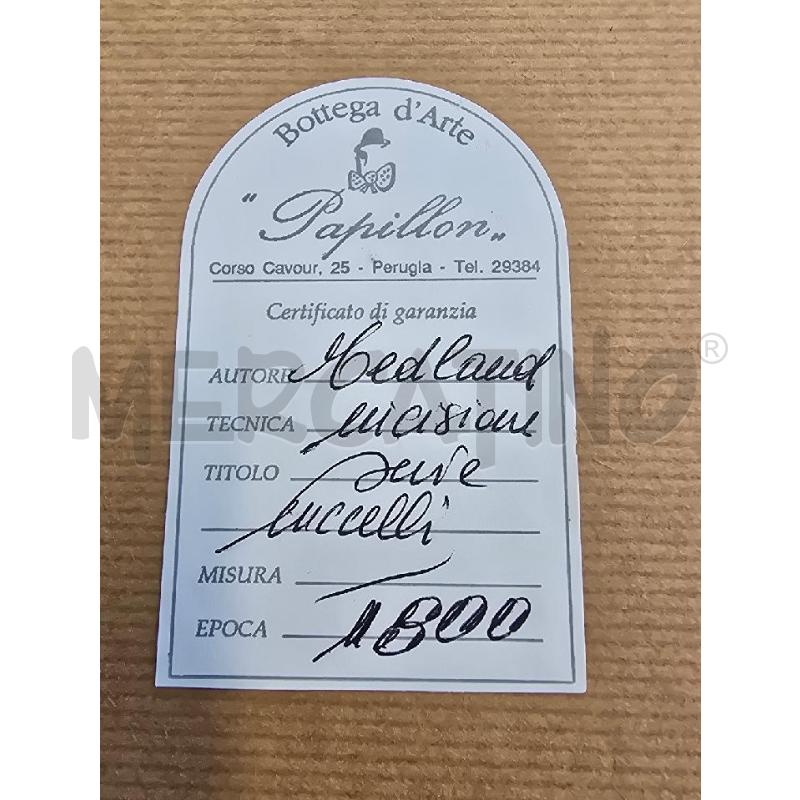 Bottega d'Arte
"Papillon„
Corso Cavour, 25 - Perugia - Tel. 29384
Certificato di garanzia
AUTORE Medland
TECNICA incisione
TITOLO Serie
uccelli
MISURA
EPOCA 1800
MERCATINO®